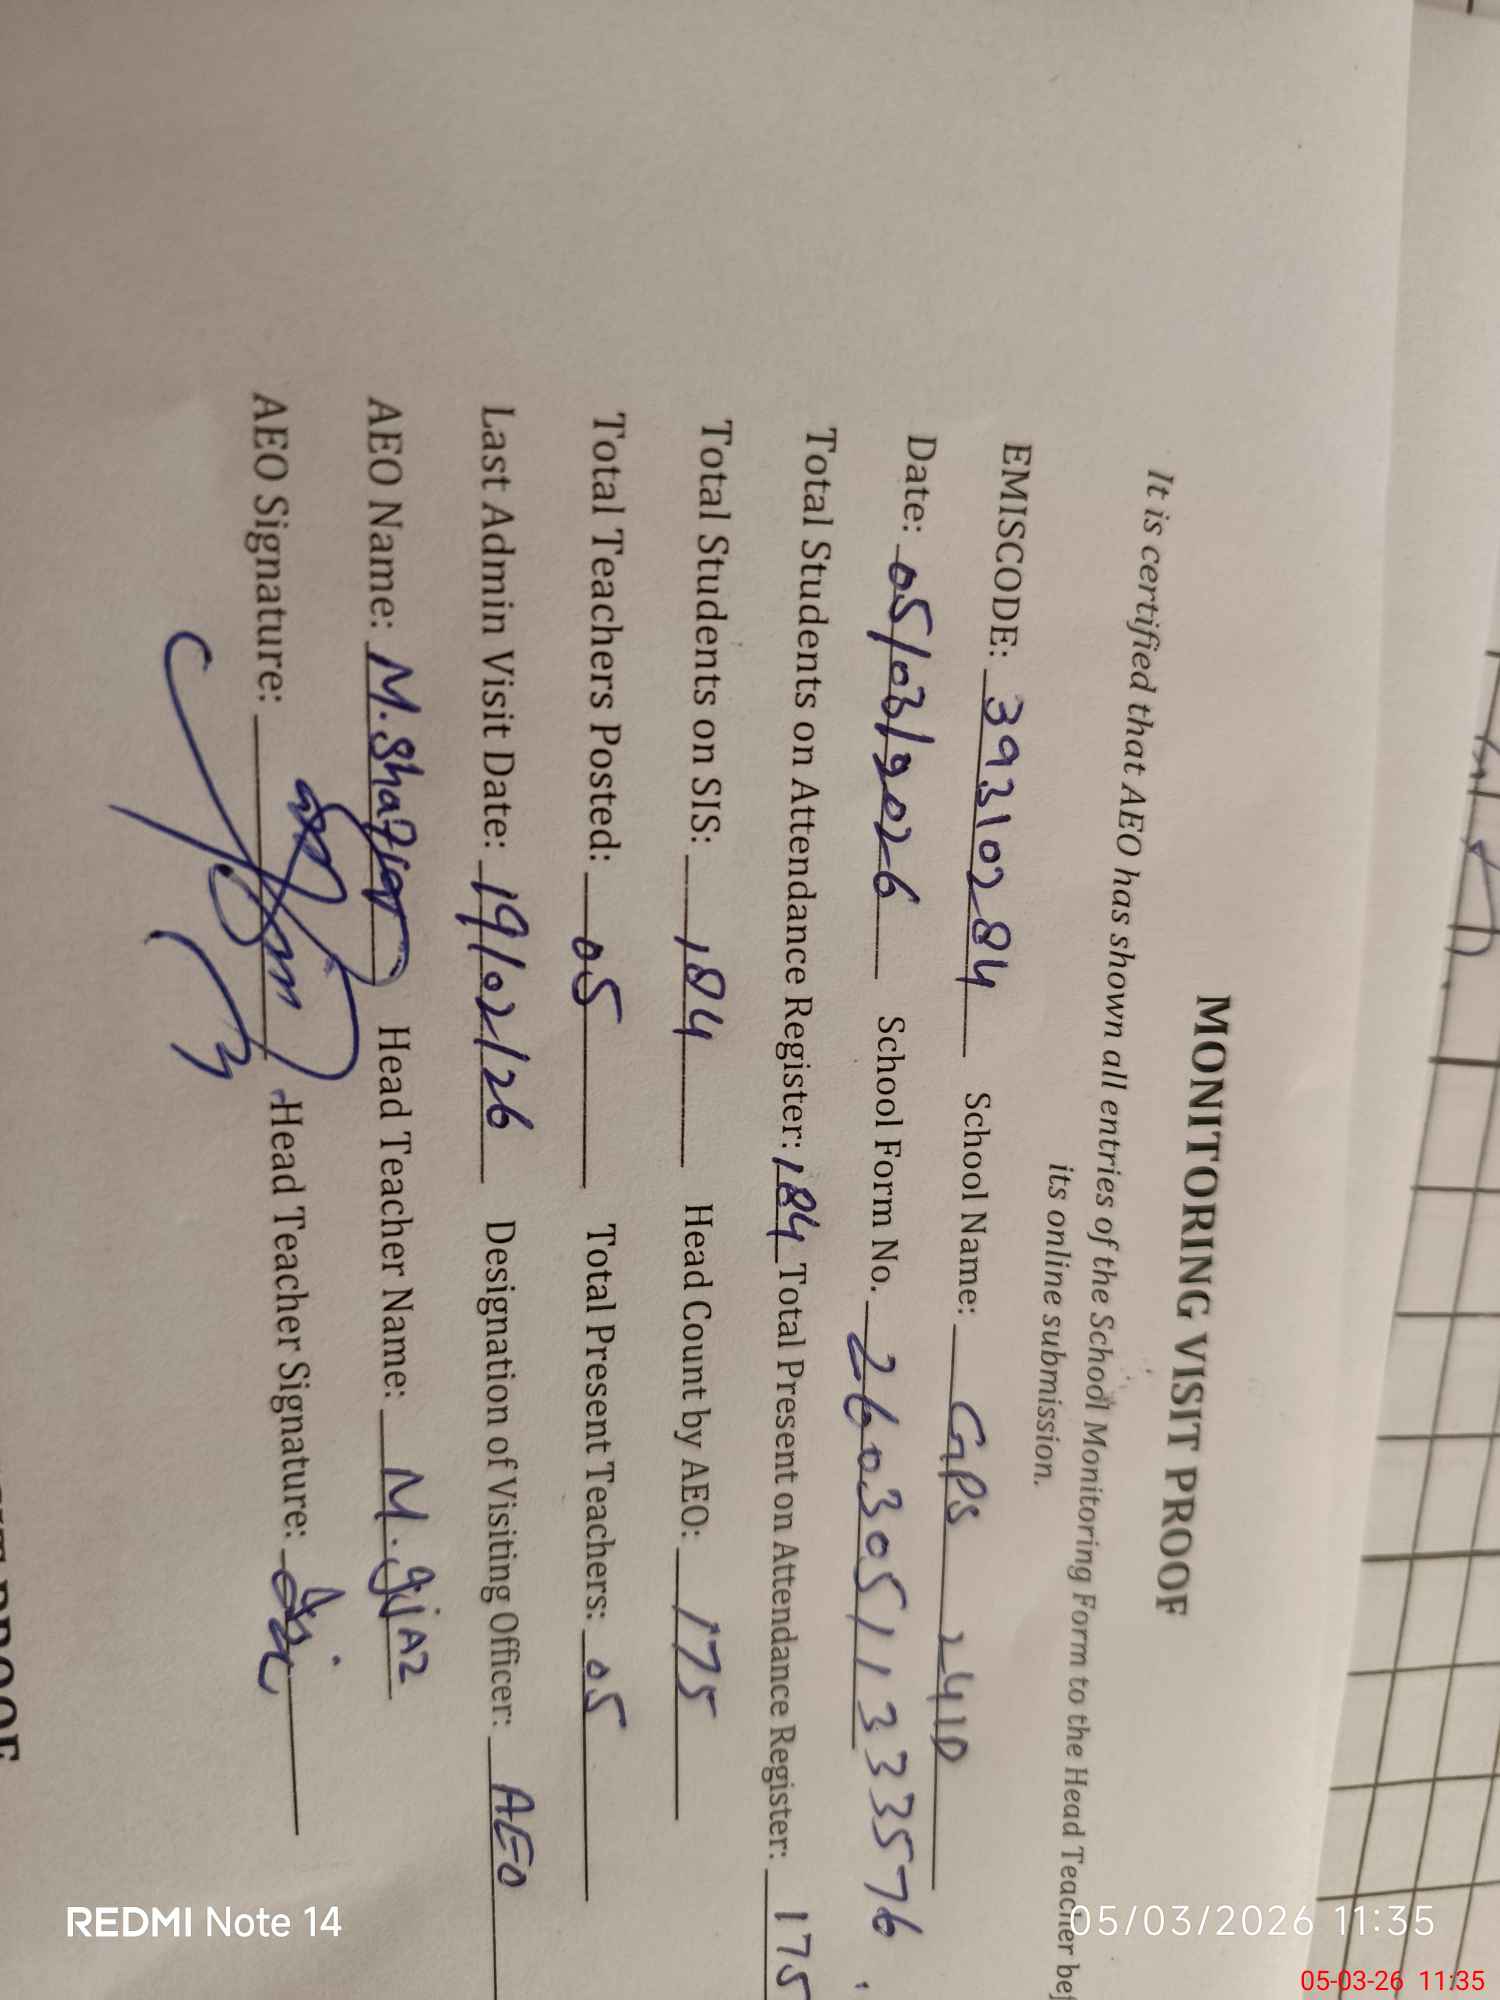 MONITORING VISIT PROOF
It is certified that AEO has shown all entries of the School Monitoring Form to the Head Teacher bef
its online submission.
EMISCODE: 39310284 School Name: GPS 241D
Date: 05/03/2026 School Form No. 26030511333576
Total Students on Attendance Register: 184 Total Present on Attendance Register: 175
Total Students on SIS: 184 Head Count by AEO: 175
Total Teachers Posted: 05 Total Present Teachers: 05
Last Admin Visit Date: 19/02/26 Designation of Visiting Officer: AEO
AEO Name: M. Head Teacher Name: M.
AEO Signature: Head Teacher Signature:
REDMI Note 14
05/03/2026 11:35
05-03-26 11:35